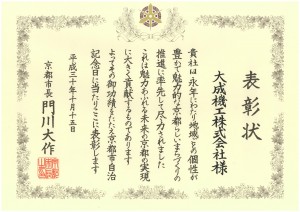 表彰状
大成機工株式会社様
貴社は永年にわたり地域ごとの個性が
豊かで魅力的な京都らしいまちづくりの
推進に率先して尽力されました
これは魅力あふれる未来の京都の実現
に大きく貢献するものであります
よってその御功績をたたえ京都市自治
記念日に当たりここに表彰します
平成三十年十月十五日
京都市長 門川大作